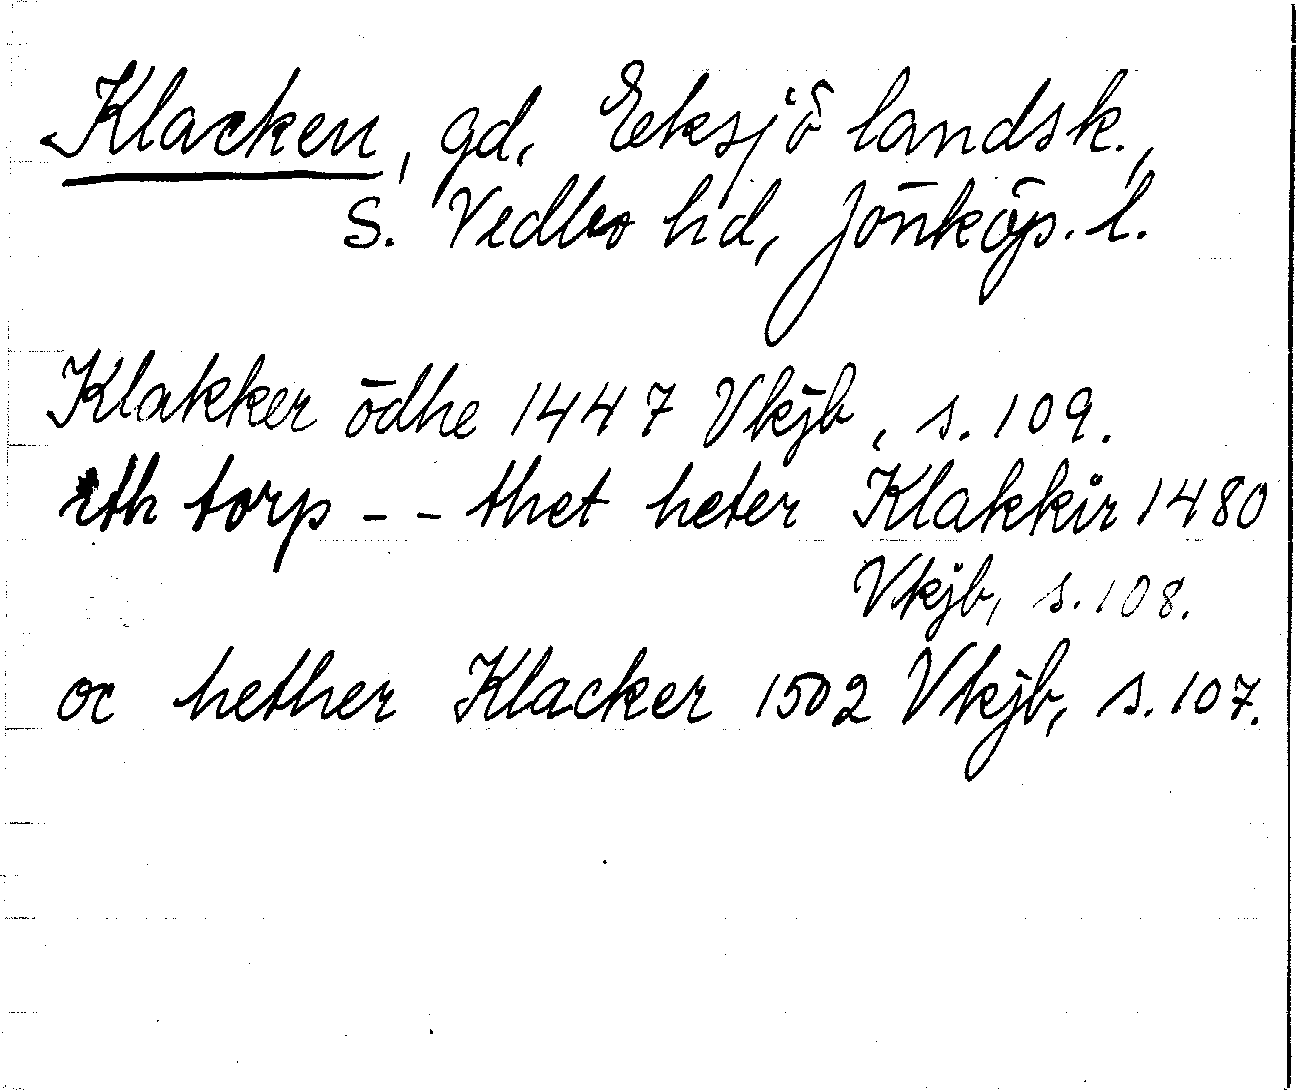 Klacken, gd, Eeksjö landsk.,
S. Vedbo hd, Jönköp. l.
Klakker ödhe 1447 Vkjb, s. 109.
eth torp - - thet heter Klakkir 1480
Vkjb, s. 108.
oc hether Klacker 1502 Vkjb, s. 107.